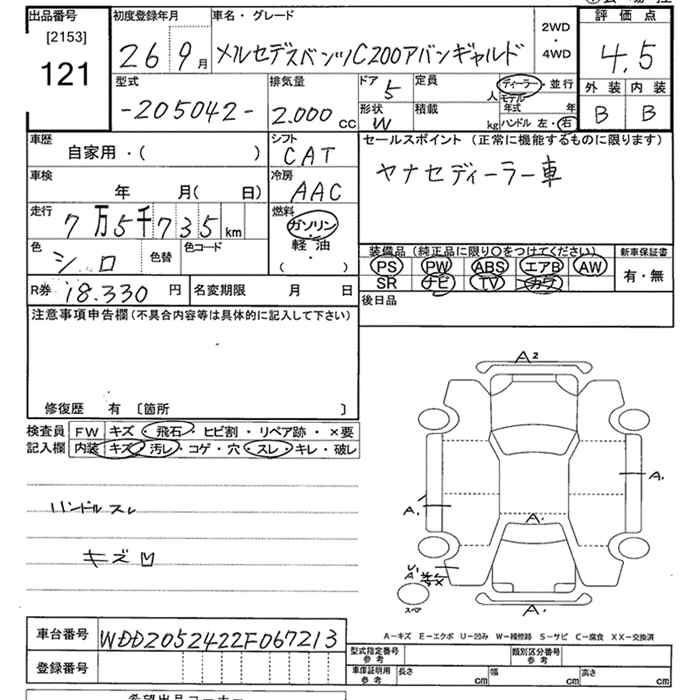 出品番号 初度登録年月 車名・グレード 2WD・4WD 評価点
[2153]
121 26 9月 メルセデスベンツC200アバンギャルド 4.5
型式 排気量 ドア 5 定員 人 ディーラー・並行 外装 内装
-205042- 2.000 cc 形状 W 積載 kg モデル年式 年 ハンドル 左・右 B B
車歴 シフト セールスポイント (正常に機能するものに限ります)
自家用・( ) CAT ヤナセディーラー車
車検 冷房
年 月( 日) AAC
走行 燃料
7万5千735km ガソリン・軽油
色 シロ 色替 色コード ・( )
装備品 (純正品に限り○をつけてください) 新車保証書
PS PW ABS エアB AW 有・無
SR ナビ TV カワ
R券 18.330 円 名変期限 月 日 後日品
注意事項申告欄 (不具合内容等は具体的に記入して下さい)
修復歴 有 〔箇所 〕
検査員 FW キズ・飛石・ヒビ割・リペア跡・×要
記入欄 内装 キズ・汚レ・コゲ・穴・スレ・キレ・破レ
ハンドルスレ
キズ
A2
A1
A1
A1
U1
A1
スペア
A1
A-キズ E-エクボ U-凹み W-補修跡 S-サビ C-腐食 XX-交換済
車台番号 WDD2052422F067213
登録番号
型式指定番号 参考 類別区分番号 参考
車庫証明用 参考 長さ cm 幅 cm 高さ cm
希望出品コーナー